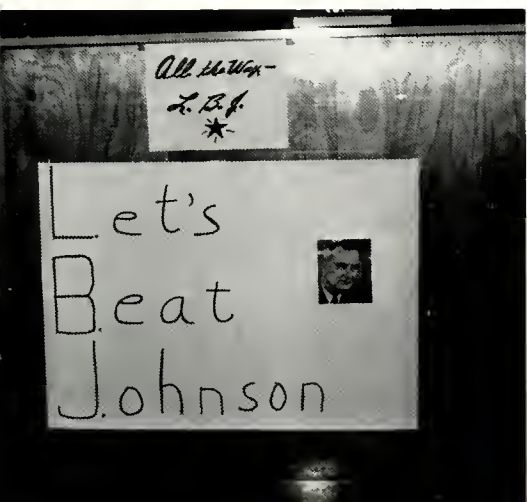 All the Way-
L. B. J.
L.et's
B.eat
J.ohnson